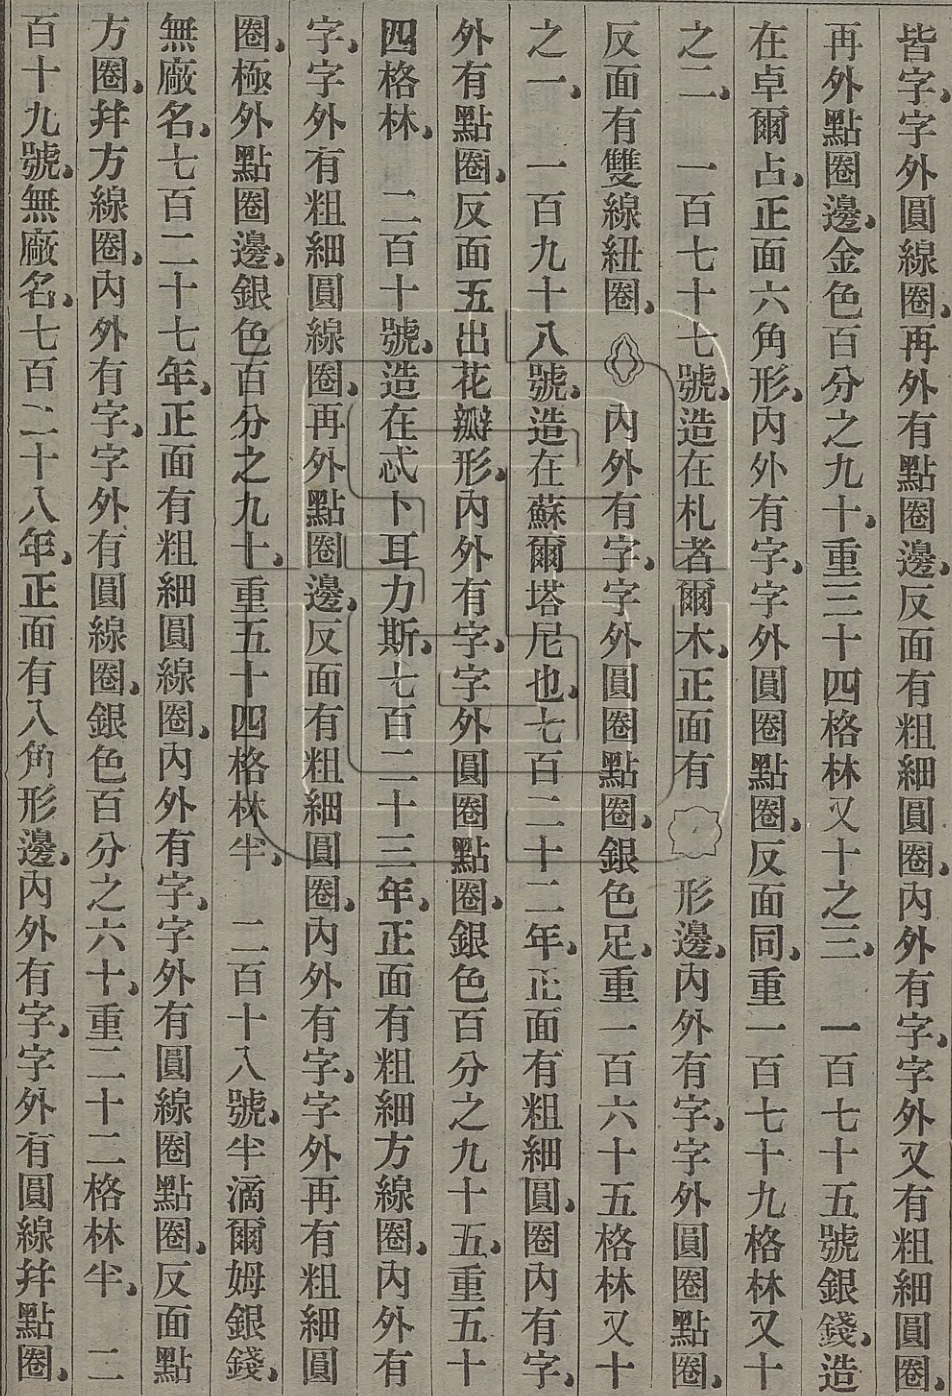 皆字、字外圓線圈、再外有點圈邊、反面有粗細圓圈、內外有字、字外又有粗細圓圈、
再外點圈邊、金色百分之九十、重三十四格林又十之三、　一百七十五號銀錢、造
在卓爾占、正面六角形、內外有字、字外圓圈點圈、反面同、重一百七十九格林又十
之二、　一百七十七號、造在札者爾木、正面有　形邊、內外有字、字外圓圈點圈、
反面有雙線紐圈、　內外有字、字外圓圈點圈、銀色足、重一百六十五格林又十
之一、　一百九十八號、造在蘇爾塔尼也、七百二十二年、正面有粗細圓、圈內有字、
外有點圈、反面五出花瓣形、內外有字、字外圓圈點圈、銀色百分之九十五、重五十
四格林、　二百十號、造在忒卜耳力斯、七百二十三年、正面有粗細方線圈、內外有
字、字外有粗細圓線圈、再外點圈邊、反面有粗細圓圈、內外有字、字外再有粗細圓
圈、極外點圈邊、銀色百分之九十、重五十四格林半、　二百十八號、半滴爾姆銀錢、
無廠名、七百二十七年、正面有粗細圓線圈、內外有字、字外有圓線圈點圈、反面點
方圈、幷方線圈、內外有字、字外有圓線圈、銀色百分之六十、重二十二格林半、　二
百十九號、無廠名、七百二十八年、正面有八角形邊、內外有字、字外有圓線幷點圈、